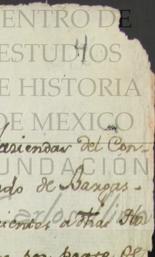 CENTRO DE
ESTUDIOS
DE HISTORIA
DE MEXICO
FUNDACIÓN
4
haciendas del Con-
do de Bargas.
cientes a dhas Ha
por parte de